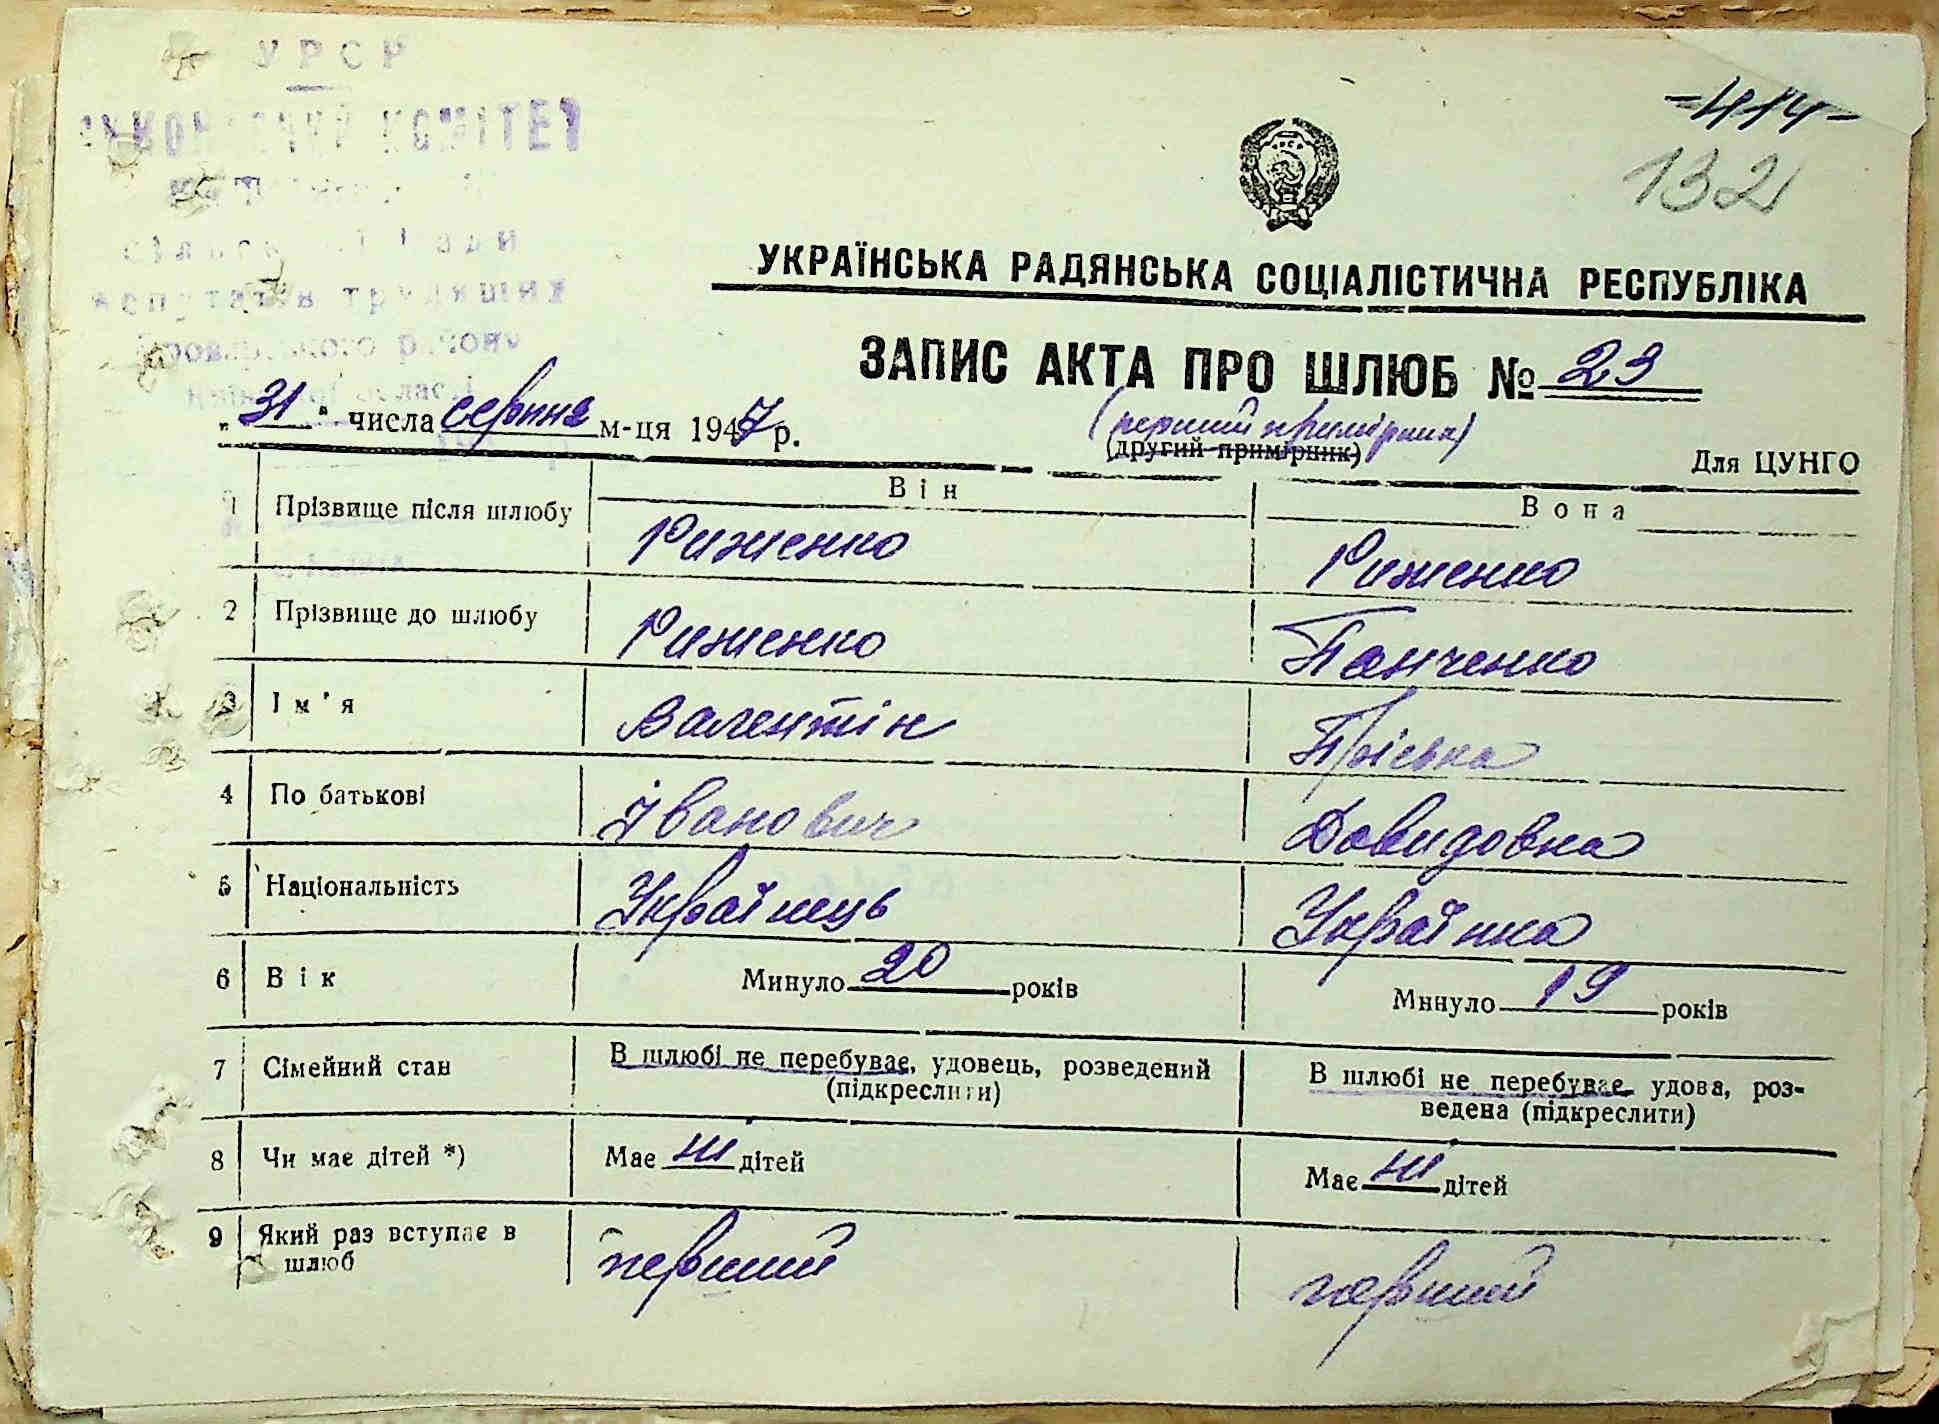 УРСР
КОМІТЕТ
депутатів трудящих
Броварського району
Київської області
-414-
132
УКРАЇНСЬКА РАДЯНСЬКА СОЦІАЛІСТИЧНА РЕСПУБЛІКА
ЗАПИС АКТА ПРО ШЛЮБ № 23
"31" числа серпня м-ця 1947 р.
(перший примірник)
(другий примірник)
Для ЦУНГО
Він Вона
1 Прізвище після шлюбу Риженко Риженко
2 Прізвище до шлюбу Риженко Панченко
3 Ім'я Валентін Пріська
4 По батькові Іванович Давидовна
5 Національність Українець Українка
6 Вік Минуло 20 років Минуло 19 років
7 Сімейний стан В шлюбі не перебуває, удовець, розведений В шлюбі не перебуває, удова, роз-
(підкреслити) ведена (підкреслити)
8 Чи має дітей *) Має ні дітей Має ні дітей
9 Який раз вступає в перший перший
шлюб